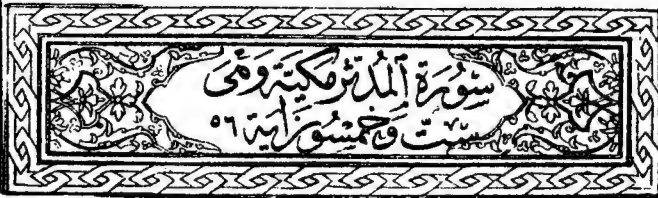 سُورَة المُدَّثِّر مَكِيَّة وَهِى
سِتّ وَخَمْسُونَ آيَة ٥٦